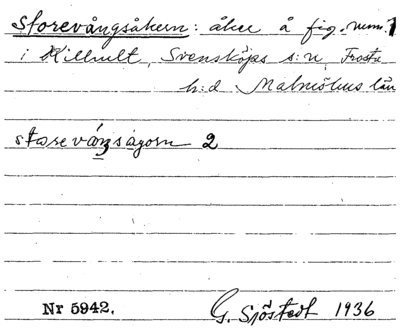 Storevångsåkern: åker å fig. num. 1
i Killhult, Svensköps s:n, Frosta
h:d Malmöhus län
storevángságorn 2
Nr 5942. G. Sjöstedt 1936